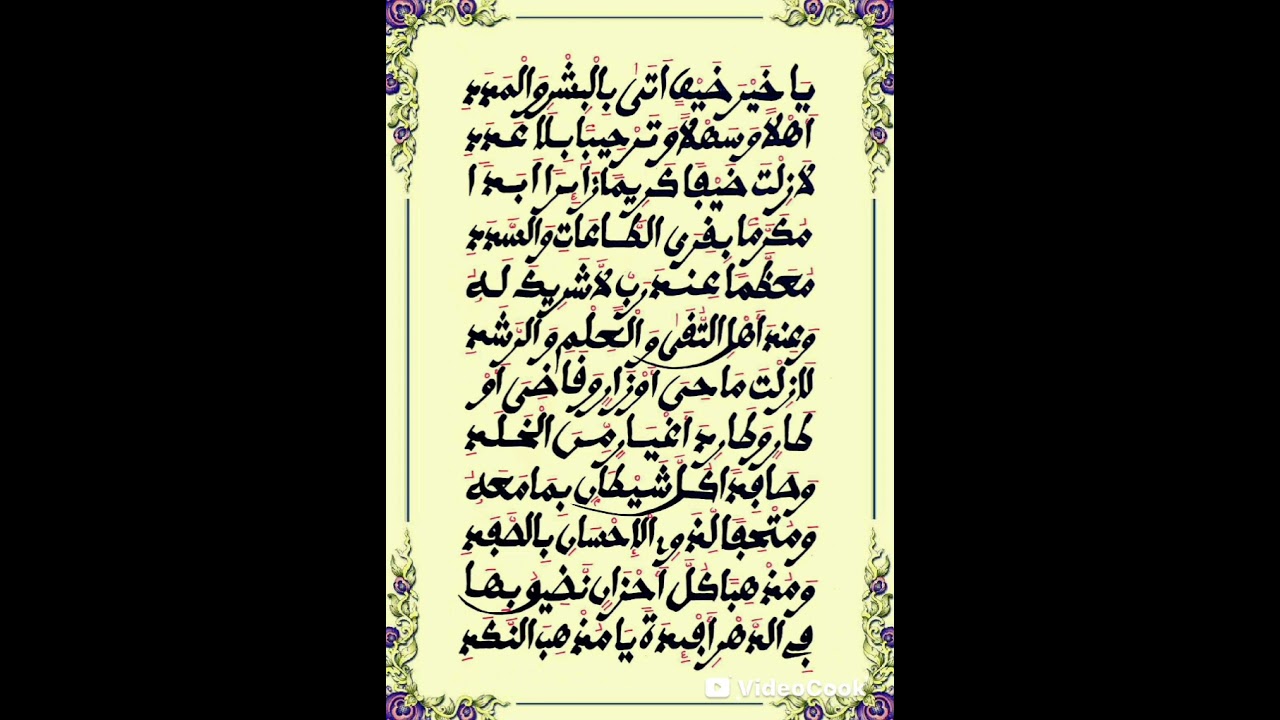 يَا خَيْرَ ضَيْفٍ أَتَىٰ بِالْبِشْرِ وَالْمَدَدِ
أَهْلًا وَسَهْلًا وَتَرْحِيبًا بِلَا عَدَدِ
لَازِلْتَ ضَيْفًا كَرِيمًا زَائِرًا أَبَدًا
مُكَرَّمًا بِقِرَى الطَّاعَاتِ وَالسَّدَدِ
مُعَظَّمًا عِنْدَ رَبٍّ لَا شَرِيكَ لَهُ
وَعِنْدَ أَهْلِ التُّقَىٰ وَالْعِلْمِ وَالرَّشَدِ
لَازِلْتَ مَاحِىَ أَوْزَارٍ وَقَاضِىَ أَوْ
طَارٍ وَطَارِدَ أَغْيَارٍ مِّنَ الْخَلَدِ
وَصَافِدًا كُلَّ شَيْطَانٍ بِمَا مَعَهُ
وَمُتْحِفًا لِذَوِي الْإِحْسَانِ بِالصَّفَدِ
وَمُذْهِبًا كُلَّ أَحْزَانٍ تَضِيقُ بِهَا
فِي الدَّهْرِ أَفْئِدَةٌ يَا مُذْهِبَ النَّكَدِ
VideoCook